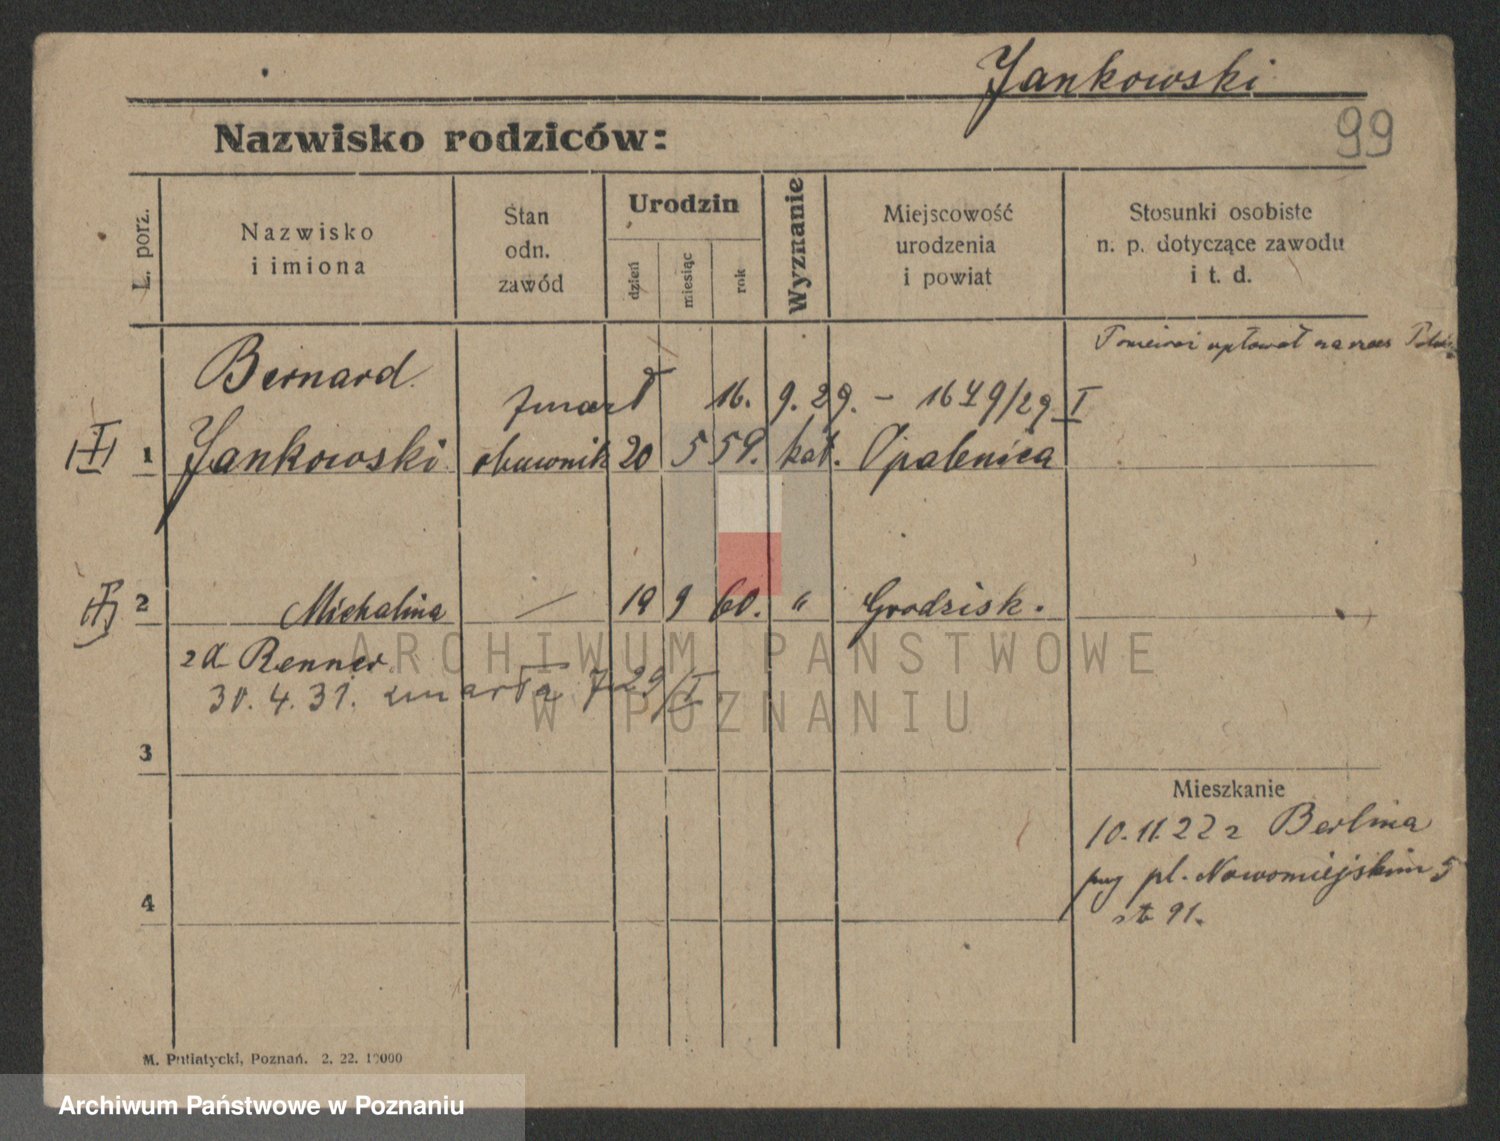 Jankowski
99
Nazwisko rodziców:
L. porz.
Nazwisko
i imiona
Stan
odn.
zawód
Urodzin
dzień
miesiąc
rok
Wyznanie
Miejscowość
urodzenia
i powiat
Stosunki osobiste
n. p. dotyczące zawodu
i t. d.
na rzecz
Bernard
zmarł 16. 9. 29. – 1679/29 I
1 Jankowski obuwnik 20 5 59. kat. Opalenica
2 Michalina — 19 9 60. " Grodzisk.
zd Renner
30. 4. 31. zmarła 729/I
ARCHIWUM PAŃSTWOWE
W POZNANIU
3
Mieszkanie
10.11.22 z Berlina
pl. Nowomiejskim 5
4
91.
M. Putiatycki, Poznań. 2. 22. 10000
Archiwum Państwowe w Poznaniu